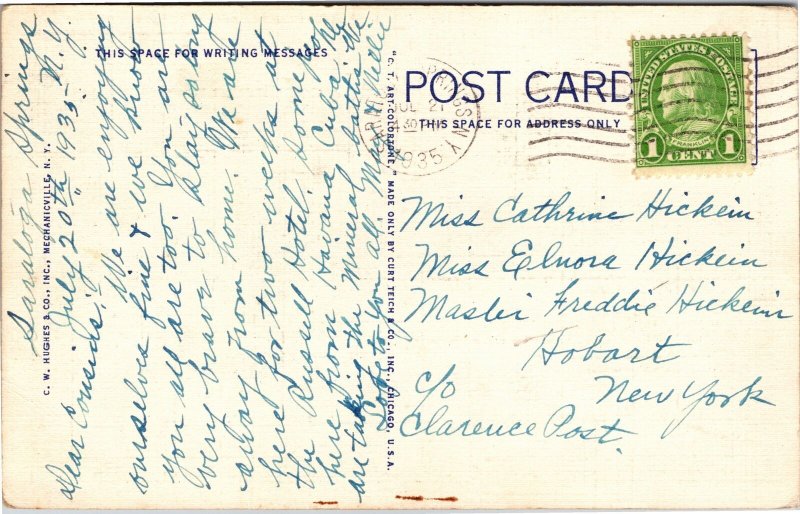 THIS SPACE FOR WRITING MESSAGES
Saratoga Springs
July 20th 1935 - N.Y.
Dear Cousins,-
We are enjoying
ourselves fine & we know
you all are too. You are
very brave to stay so long
away from home. We are
here for two weeks at
the Russell Hotel. Some folks
here from Havana Cuba. We
are taking the Mineral baths. We
Love to you all, May Nellie
C. W. HUGHES & CO., INC., MECHANICVILLE, N. Y.
"C. T. ART-COLORTONE," MADE ONLY BY CURT TEICH & CO., INC., CHICAGO, U.S.A.
POST CARD
THIS SPACE FOR ADDRESS ONLY
JUL 21
430
1935
N.Y.
UNITED STATES POSTAGE
FRANKLIN
1 CENT 1
Miss Cathrine Hickein
Miss Elnora Hickein
Master Freddie Hickein
Hobart
New York
c/o
Clarence Post.